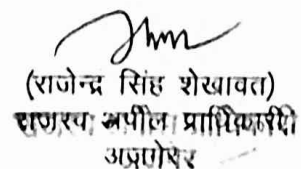 (राजेन्द्र सिंह शेखावत)
राजस्व अपील प्राधिकारी